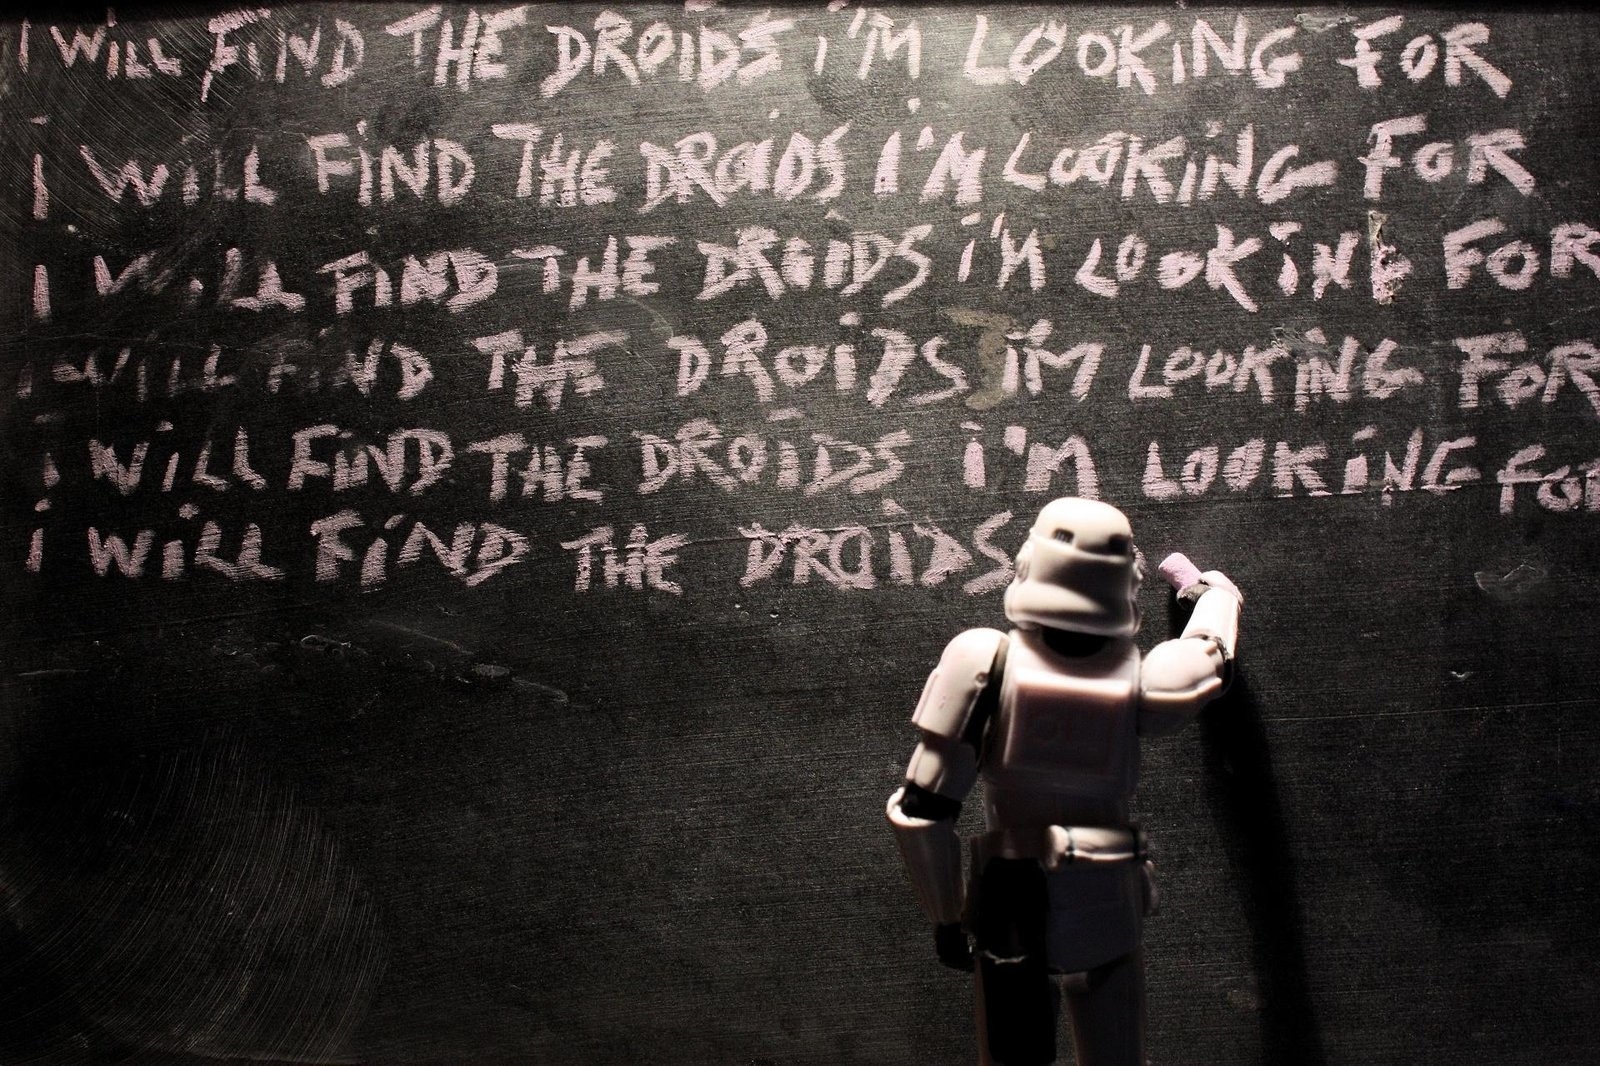 I WiLL FiND THE DROiDS i'M LOOKiNG FOR
I WiLL FiND THE DROiDS i'M LOOKiNG FOR
I WiLL FiND THE DROiDS i'M LOOKiNG FOR
I WiLL FiND THE DROiDS i'M LOOKiNG FOR
i WiLL FiND THE DROiDS i'M LOOKiNG FOR
i WiLL FiND THE DROiDS